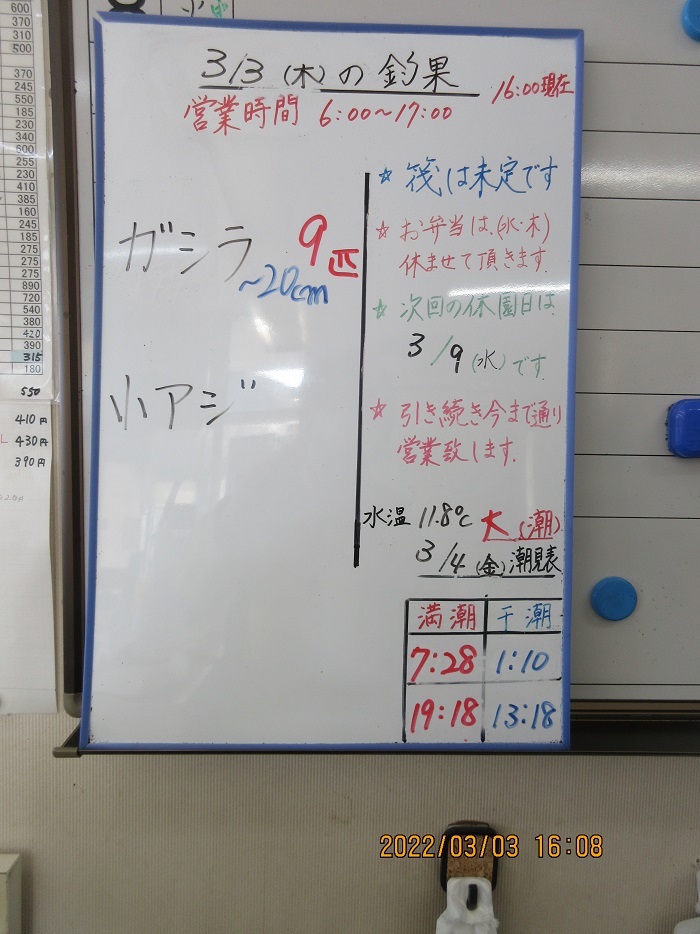 600
370
310
500
370
245
550
185
230
340
600
255
230
410
385
160
245
185
275
255
275
890
720
540
380
420
390
315
180
550
410円
L 430円
390円
3/3(木)の釣果
16:00現在
営業時間 6:00~17:00
ガシラ 9匹
~20cm
小アジ
☆ 筏は未定です
☆ お弁当は、(水・木)
休ませて頂きます.
☆ 次回の休園日は
3/9(水)です.
☆ 引き続き今まで通り
営業致します.
水温 11.8℃ 大(潮)
3/4(金)潮見表
満潮 干潮
7:28 1:10
19:18 13:18
2022/03/03 16:08